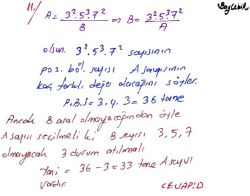 11/
A = 3².5³.7² / B ⇒ B = 3².5³.7² / A
olsun. 3².5³.7² sayısının
poz. böl. sayısı A sayısının
kaç farklı değer alacağını söyler.
P.B.S = 3.4.3 = 36 tane
Ancak B asal olmayacağından öyle
A sayısı seçilmeli ki B sayısı 3, 5, 7
olmayacak 3 durum atılmalı
Yani = 36 - 3 = 33 tane A sayısı
vardır.
CEVAP: D